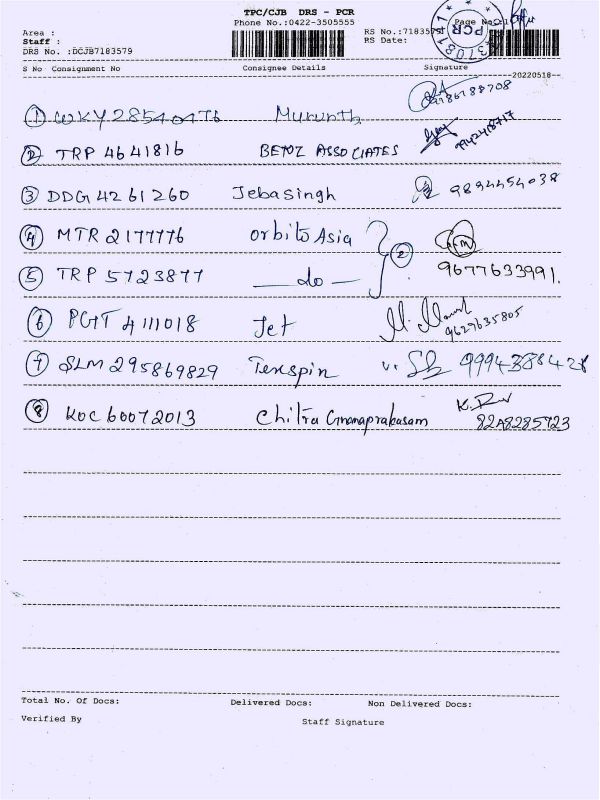 TPC/CJB DRS - PCR
Phone No.:0422-3505555
Page No.:1
Area :
Staff :
DRS No. :DCJB7183579
RS No.:7183579
RS Date:
PCR
S No Consignment No Consignee Details Signature
20220518
1 WKY 285404076 Mururth
2 TRP 4641816 BETOZ ASSOCIATES
3 DDG 4261260 Jebasingh 9894454038
4 MTR 2177776 Orbito Asia
2
5 TRP 5723877 — do — 9677633991.
6 PGT 4111018 Jet 9629635805
7 SLM 295869829 Texspin 9994388428
8 KOC 60072013 Chitra Gnanaprakasam K.R
Total No. Of Docs: Delivered Docs: Non Delivered Docs:
Verified By Staff Signature